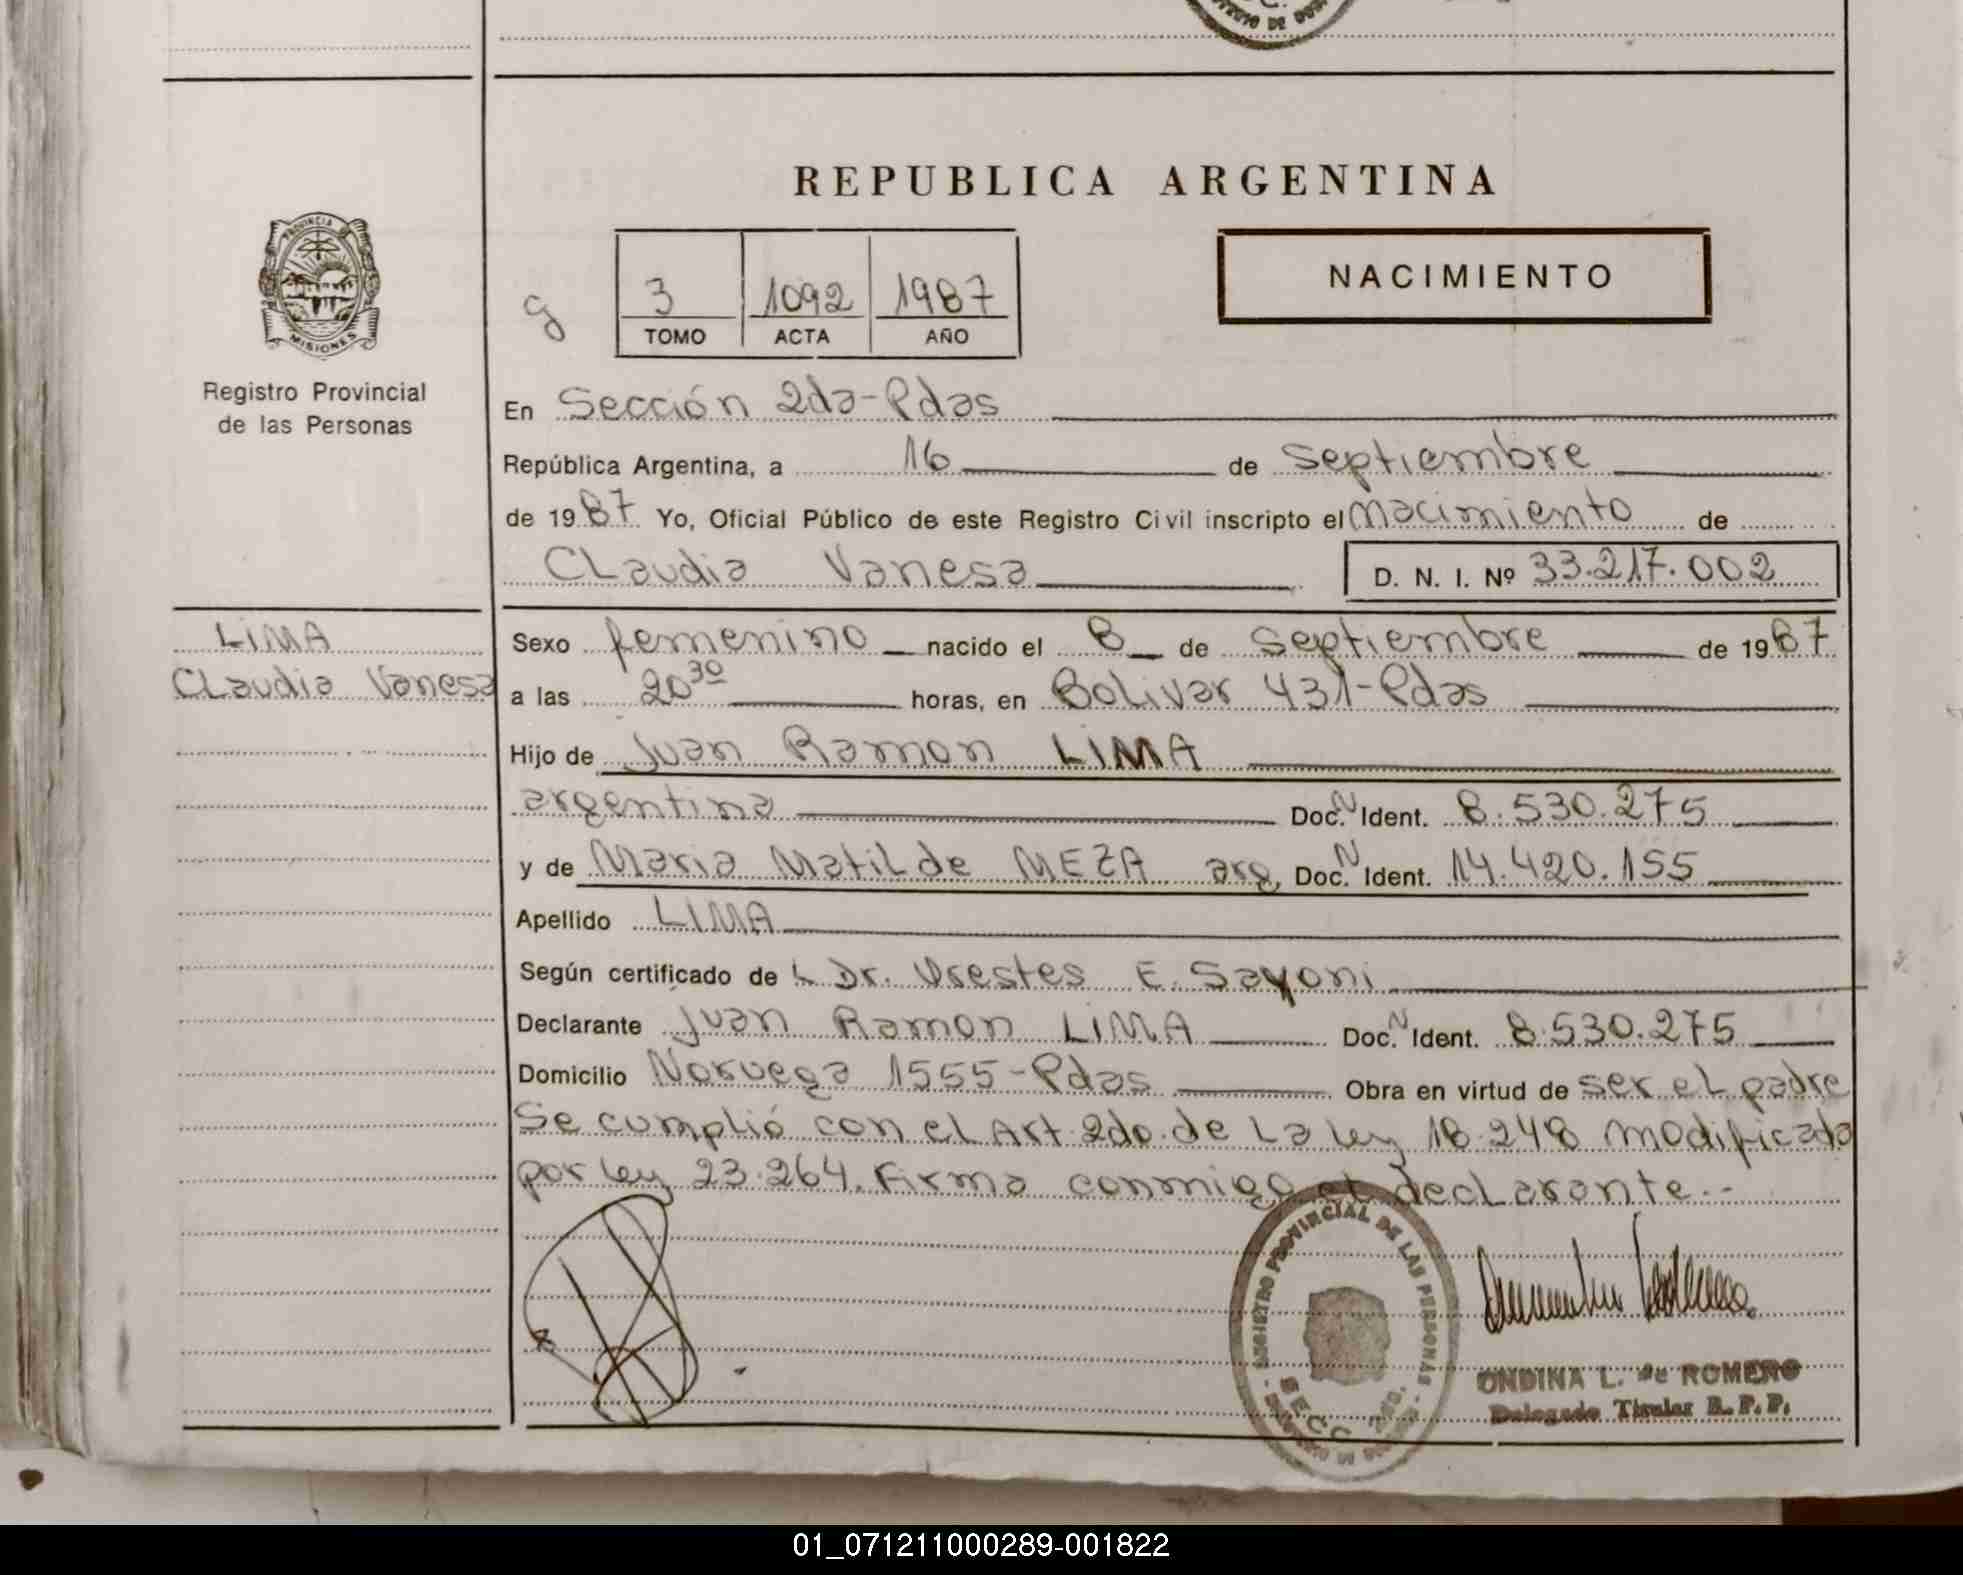 REPUBLICA ARGENTINA
PROVINCIA DE
MISIONES
Registro Provincial
de las Personas
g
3 1092 1987
TOMO ACTA AÑO
NACIMIENTO
En Sección 2da-Pdas
República Argentina, a 16 de Septiembre
de 1987 Yo, Oficial Público de este Registro Civil inscripto el Nacimiento de
Claudia Vanesa D. N. I. Nº 33.217.002
LIMA
Claudia Vanesa
Sexo femenino nacido el 8 de Septiembre de 1987
a las 20³⁰ horas, en Bolivar 431-Pdas
Hijo de Juan Ramon LIMA
argentina Doc. N Ident. 8.530.275
y de Maria Matilde MEZA arg. Doc. N Ident. 14.420.155
Apellido LIMA
Según certificado de L Dr. Orestes E. Sayoni
Declarante Juan Ramon LIMA Doc. N Ident. 8.530.275
Domicilio Noruega 1555-Pdas Obra en virtud de ser el padre
Se cumplió con el Art 2do de La Ley 18.248 modificada
por ley 23.264. Firma conmigo el declarante.-
REGISTRO PROVINCIAL DE LAS PERSONAS
SECC. 2da.
ONDINA L. de ROMERO
Delegado Titular R. P. P.
01_071211000289-001822